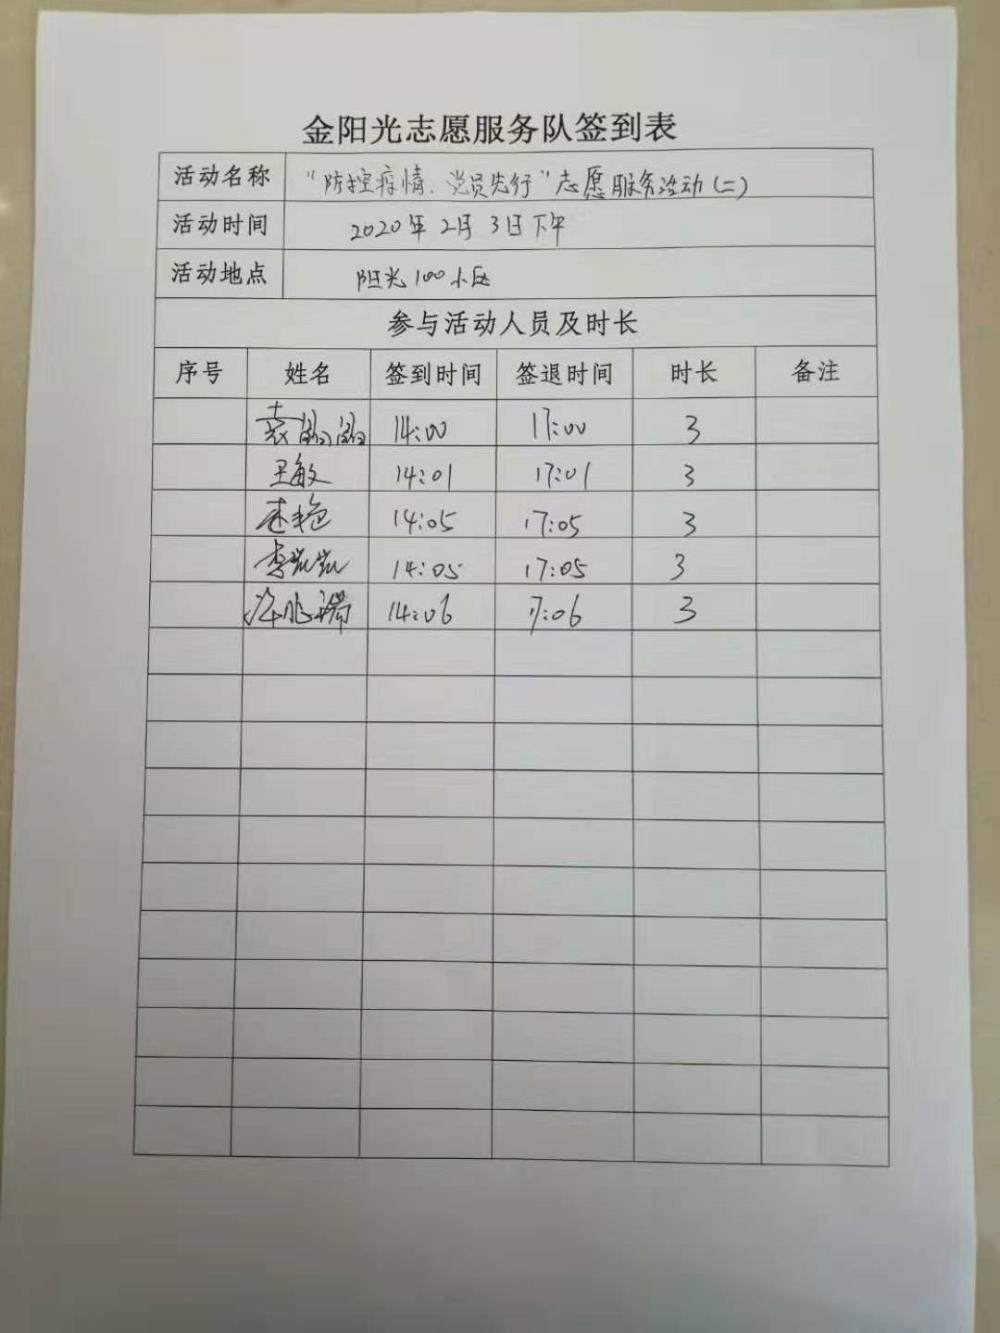 金阳光志愿服务队签到表
活动名称 “防控疫情、党员先行”志愿服务活动(二)
活动时间 2020年2月3日下午
活动地点 阳光100小区
参与活动人员及时长
序号 姓名 签到时间 签退时间 时长 备注
14:00 17:00 3
王敏 14:01 17:01 3
14:05 17:05 3
李凯凯 14:05 17:05 3
14:06 17:06 3